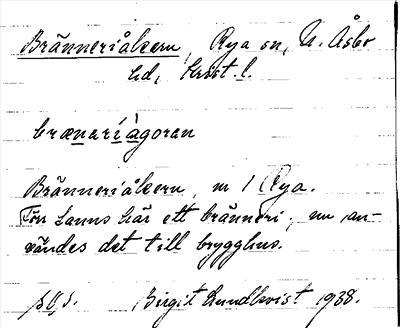 Bränneriåkern, Rya sn, N. Åsbo
hd, Krist. l.
brænaríàgoran
Bränneriåkern, nr 1 Rya.
Förr fanns här ett bränneri, nu an-
vändes det till brygghus.
Birgit Lundkvist 1938.